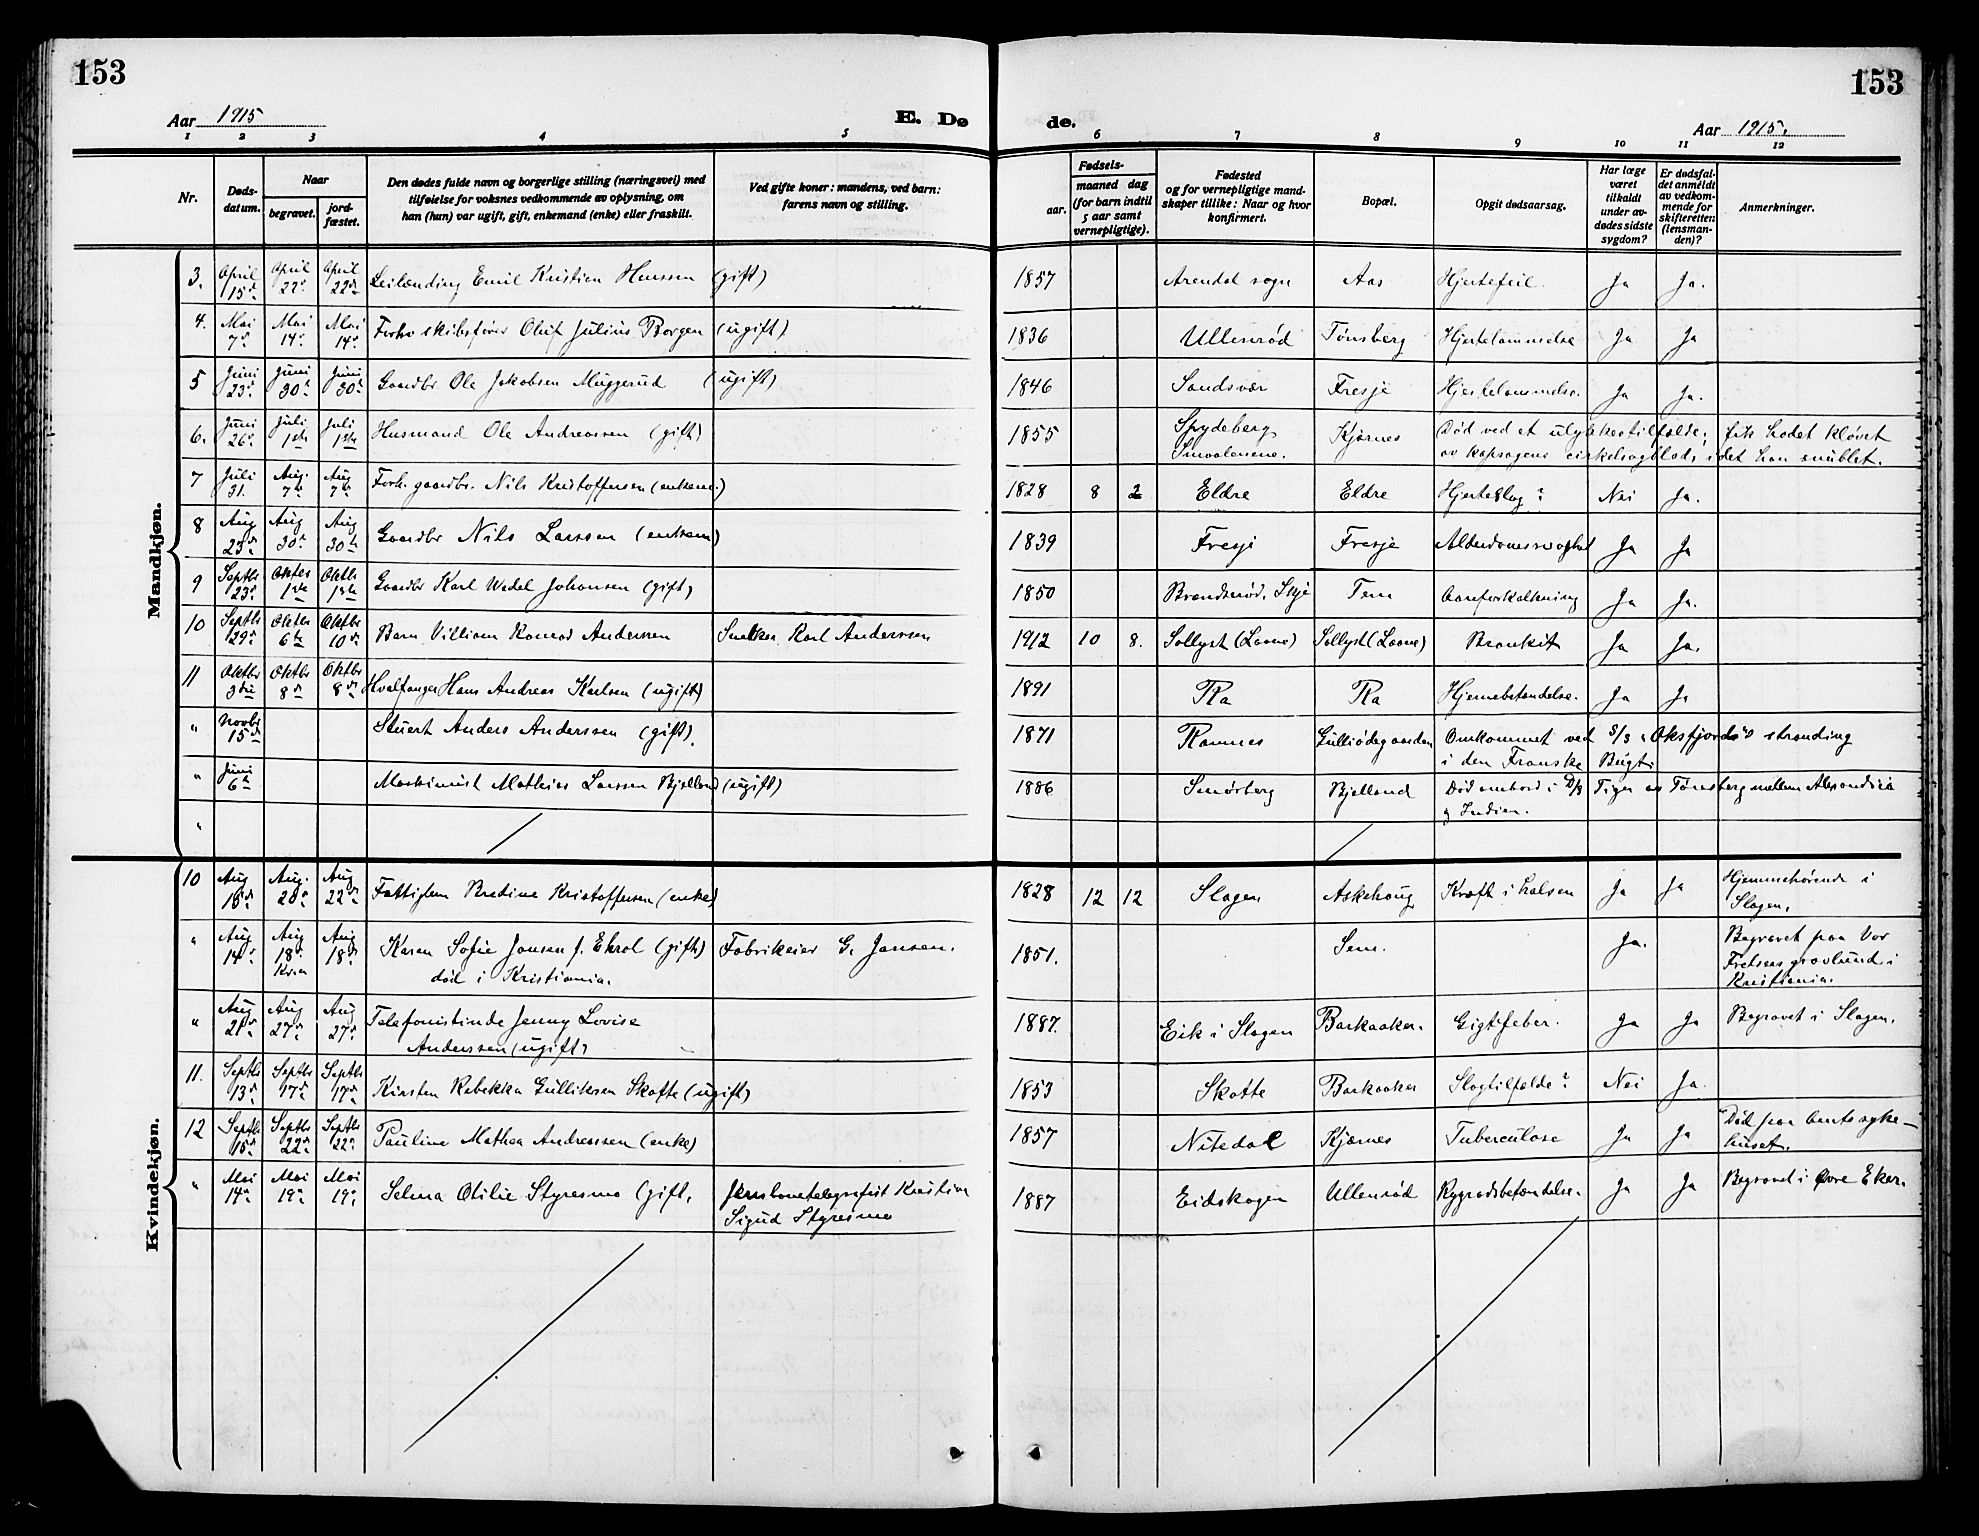 153
153
Aar 1915
E. Dø
de.
Aar 1915.
1 2 3 4 5 6 7 8 9 10 11 12
Nr.
Døds-
datum.
Naar
begravet.
jord-
fæstet.
Den dødes fulde navn og borgerlige stilling (næringsvei) med
tilføielse for voksnes vedkommende av oplysning, om
han (hun) var ugift, gift, enkemand (enke) eller fraskilt.
Ved gifte koner: mandens, ved barn:
farens navn og stilling.
Fødsels-
aar.
maaned dag
(for barn indtil
5 aar samt
vernepligtige).
Fødested
og for vernepligtige mand-
skaper tillike: Naar og hvor
konfirmert.
Bopæl.
Opgit dødsaarsag.
Har læge
været
tilkaldt
under av-
dødes sidste
sygdom?
Er dødsfal-
det anmeldt
av vedkom-
mende for
skifteretten
(lensman-
den)?
Anmerkninger.
Mandkjøn.
3. April 15d April 22d April 22d Leilænding Emil Kristian Hanssen (gift) 1857 Arendal sogn Aas Hjertefeil. Ja Ja.
4. Mai 7d Mai 14d Mai 14d Forhv skibsfører Oluf Julius Borgen (ugift) 1836 Ullenrød Tønsberg Hjertelammelse Ja Ja
5 Juni 23d Juni 30d Juni 30d Gaardbr Ole Jakobsen Muggerud (ugift) 1846 Sandsvær Fresje Hjertelammelse. Ja Ja.
6. Juni 26d Juli 1ste Juli 1ste Husmand Ole Andreassen (gift) 1855 Spydeberg Smaalenene. Kjærnes Død ved et ulykkestilfælde; fik hodet kløvet
av kapsagens cirkelsagblad, idet han snublet.
7 Juli 31. Aug. 7de Aug 7de Forh. gaardbr. Nils Kristoffersen (enkem.) 1828 8 2 Eldre Eldre Hjerteslag? Nei Ja.
8 Aug 23d Aug 30te Aug 30te Gaardbr Nils Larssen (enkem) 1839 Fresje Fresje Alderdomssvaghet Ja Ja
9 Septbr 23d Oktbr 1ste Oktbr 1ste Gaardbr Karl Wedel Johansen (gift) 1850 Brændsrød, Skje Tem Aareforkalkning Ja Ja.
10 Septbr 29d Oktbr 6te Oktbr 10d Barn Villiam Konrad Anderssen Snekker Karl Anderssen 1912 10 8. Sollyst (Laane) Sollyst (Laane) Bronkit Ja Ja.
11 Oktbr 3die Oktbr 8d Oktbr 8d Hvalfanger Hans Andreas Karlsen (ugift) 1891 Ra Ra Hjernebetændelse. Ja Ja
" Novbr 15d Stuert Anders Anderssen (gift). 1871 Ramnes Gulliødegaarden Omkommet ved S/S "Oksfjords"s stranding
i den Franske Bugt.
" Juni 6te Maskinist Mathias Larssen Bjelland (ugift) 1886 Smørberg Bjelland Død ombord i D/S Tiger av Tønsberg mellem Alexandria
og Indien.
"
Kvindekjøn.
10 Aug 18d Aug. 20d Aug 22d Fattiglem Bredine Kristoffersen (enke) 1828 12 12 Slagen Askehaug Kræft i halsen Ja Ja Hjemmehørende i
Slagen.
" Aug 14d Aug 18d Kr.a Aug 18d Karen Sofie Jansen f. Ekrol (gift) Fabrikeier G. Jansen. 1851. Sem. Ja. Begravet paa Vor
død i Kristiania.
Frelsers gravlund i
Kristiania.
" Aug 21d Aug 27d Aug 27d Telefonistinde Jenny Lovise
Anderssen (ugift) 1887. Eik i Slagen Barkaaker. Gigtfeber. Ja Ja Begravet i Slagen.
11. Septbr 13d Septbr 17d Septbr 17d Kirsten Rebekka Gulliksen Skatte (ugift) 1853 Skatte Barkaaker Slagtilfælde? Nei Ja.
12 Septbr 15d Septbr 22d Septbr 22d Pauline Mathea Andreassen (enke) 1857 Nitedal Kjærnes Tuberculose Ja Ja Død paa Amtssyke-
huset.
" Mai 14d Mai 19d Mai 19d Selma Otilie Styresmo (gift, Jernbanetelegrafist Kristian
Sigurd Styresmo 1887 Eidskogen Ullenrød Rygradsbetændelse. Ja Ja Begravet i Øvre Eker.